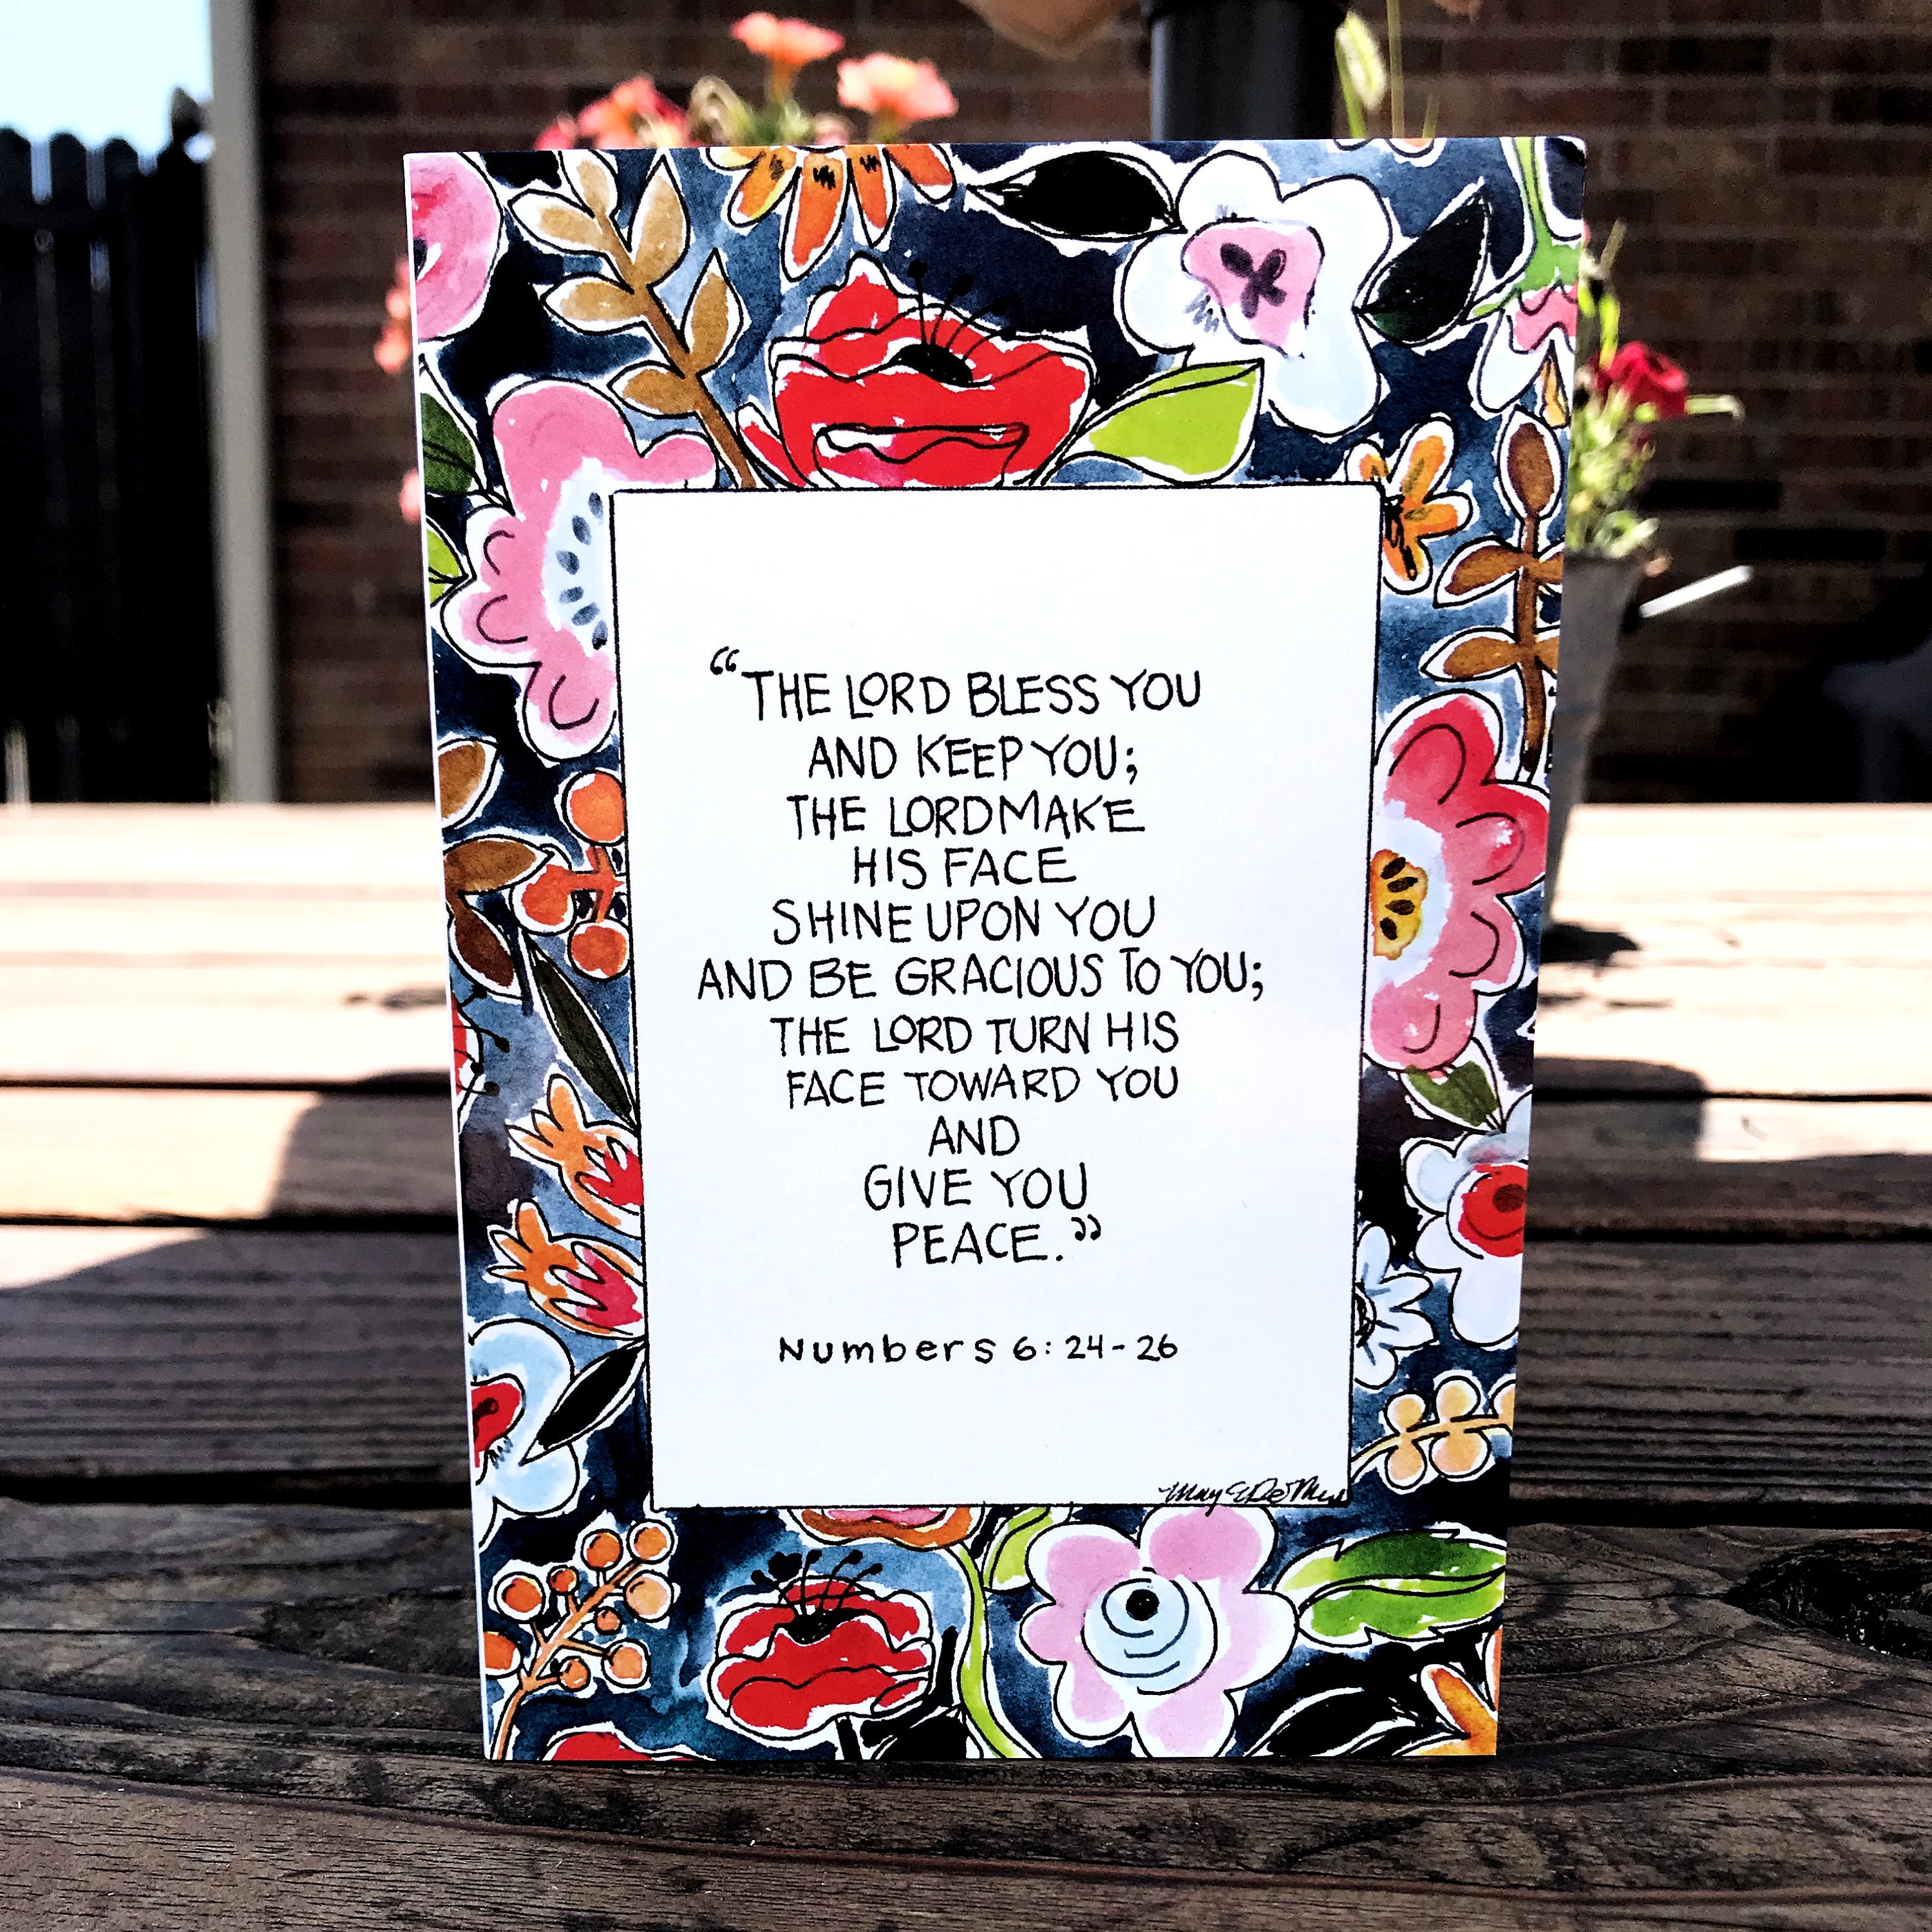 “THE LORD BLESS YOU
AND KEEP YOU;
THE LORD MAKE
HIS FACE
SHINE UPON YOU
AND BE GRACIOUS TO YOU;
THE LORD TURN HIS
FACE TOWARD YOU
AND
GIVE YOU
PEACE.”
Numbers 6:24-26